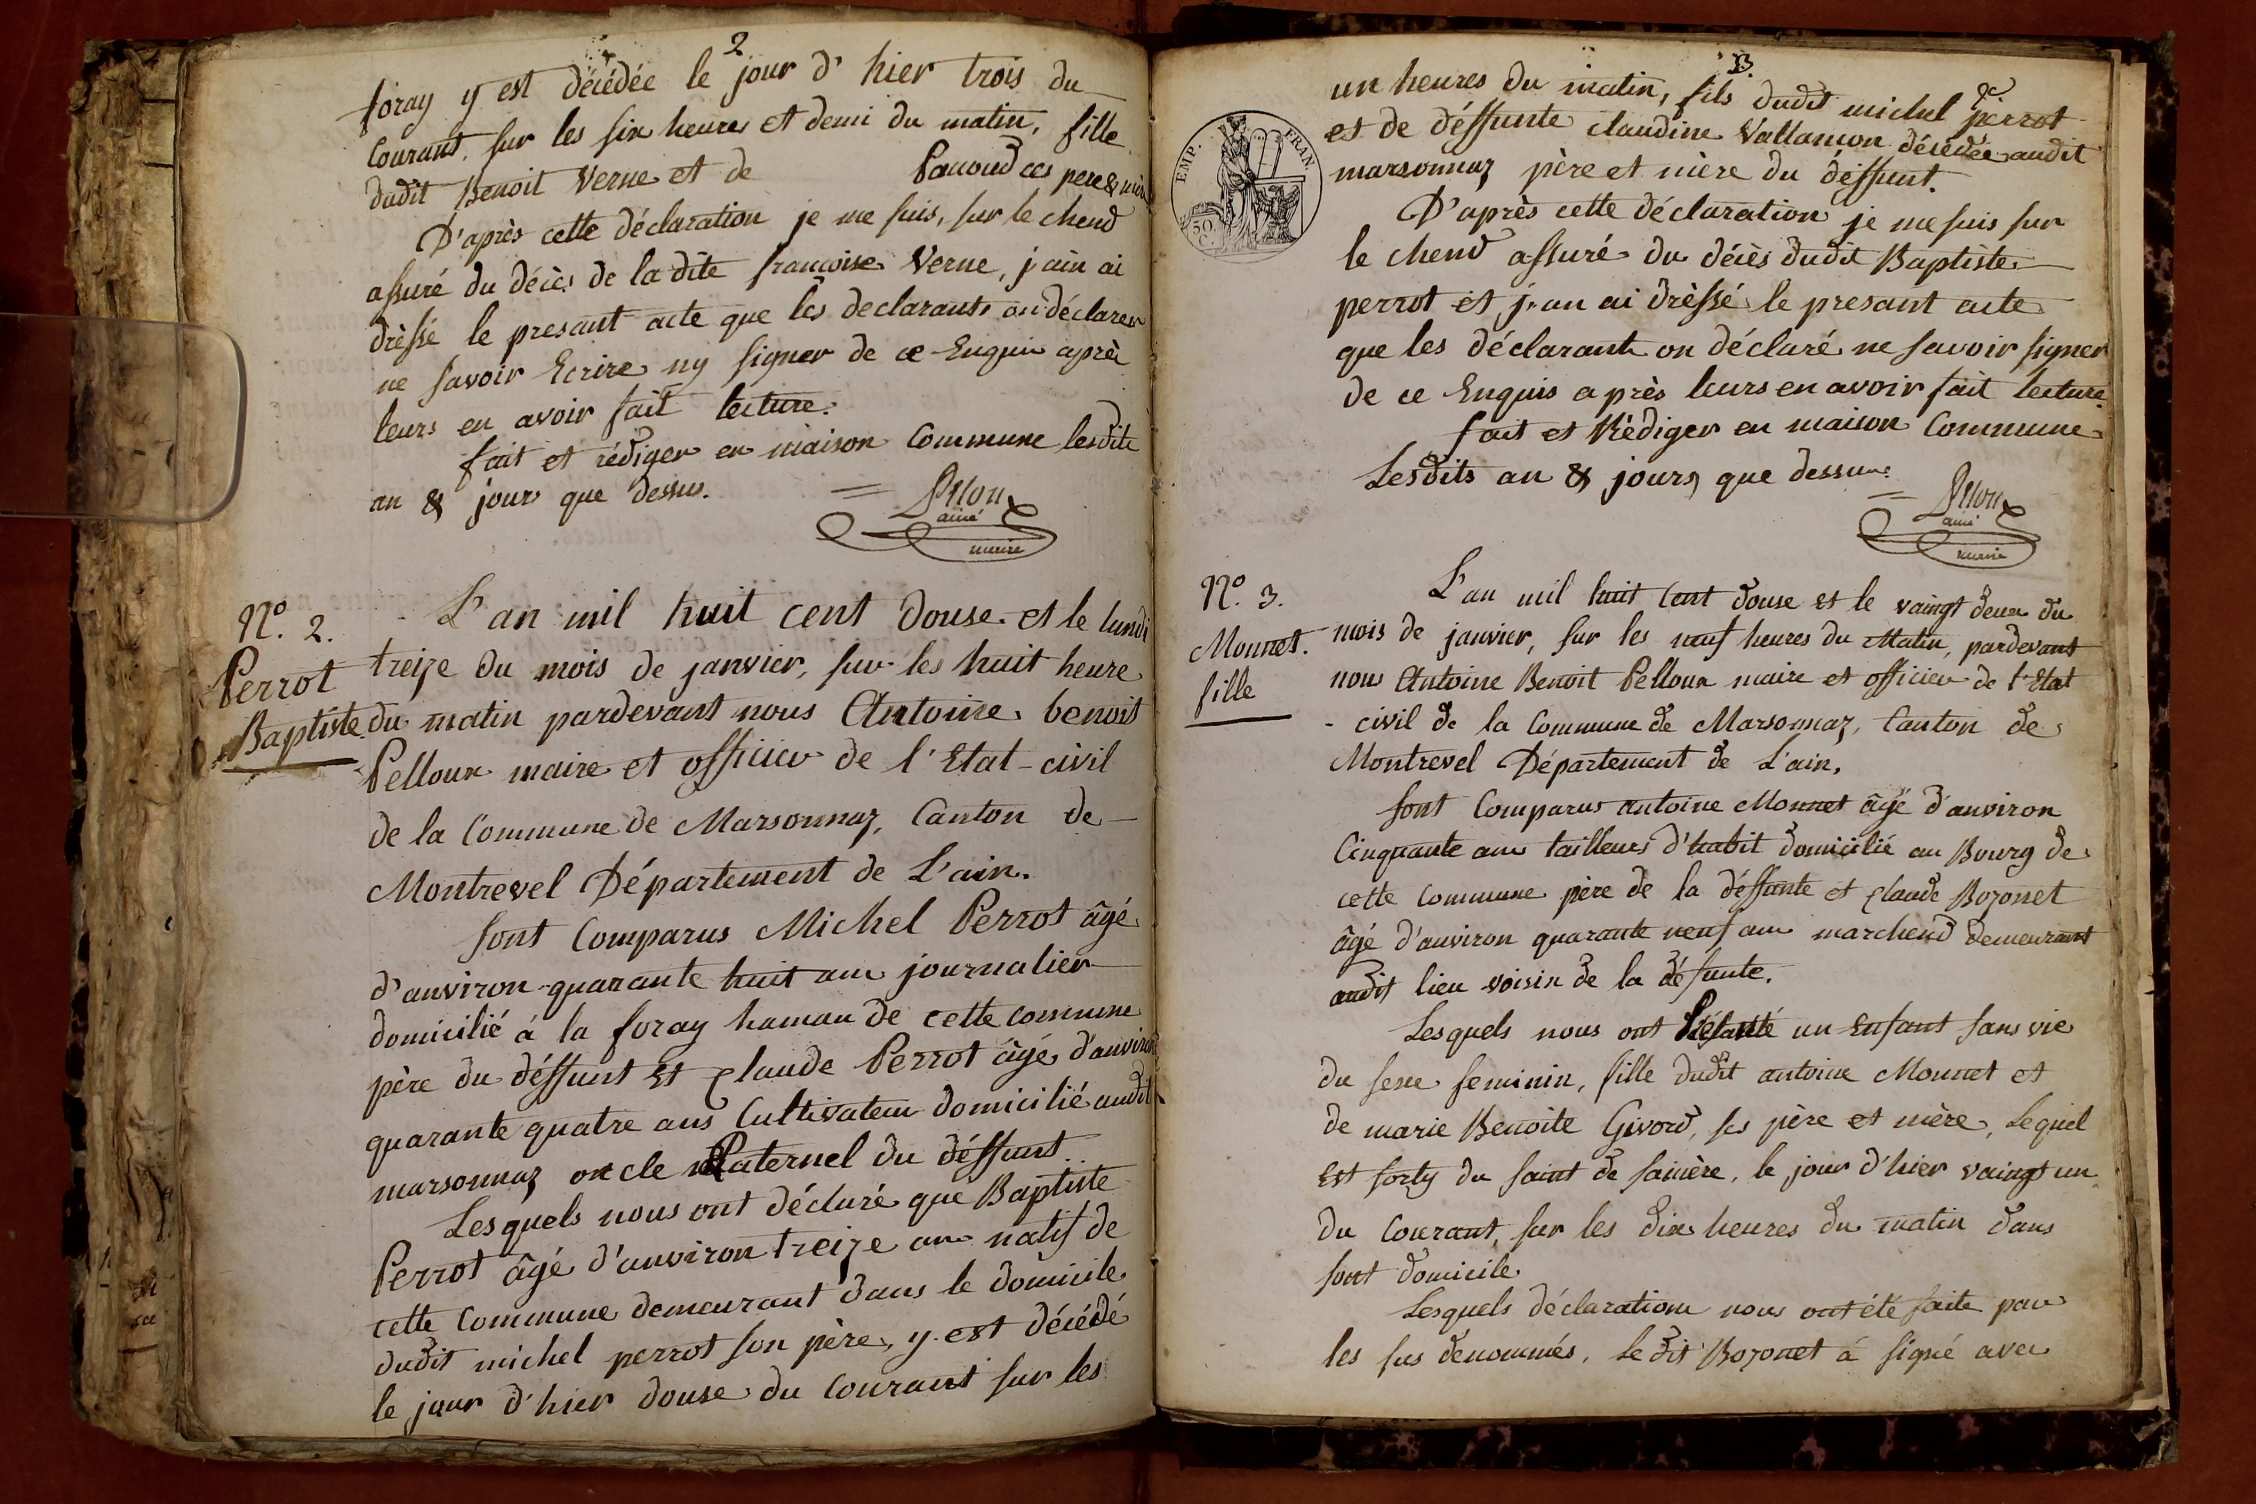 2
foray y est décédée le jour d'hier trois du
Courant, sur les six heures et demi du matin, fille
dudit Benoit Verne et de Pauoud ces pere & mère
D'après cette déclaration je me suis, sur le chend
assuré du décès de la dite francoise Verne, j'ain ai
drèssé le presant acte que les declarants on déclarer
ne savoir Ecrire ny signer de ce Enquis après
leurs en avoir fait lecture.
fait et rédiger en maison Commune lesdits
an & jours que dessus.
ainé
maire
N.o 2.
Perrot
Baptiste
L'an mil huit cent douse et le lundi
treize du mois de janvier, sur les huit heure
du matin pardevant nous Antoine benoit
Pelloux maire et officier de l'Etat-civil
de la Commune de Marsonnaz, Canton de
Montrevel Département de L'ain.
sont Comparus Michel Perrot âgé
d'anviron quarante huit ans journalier
domicilié à la foray hamau de cette commune
père du déffunt Et Claude Perrot âgé d'anviron
quarante quatre ans Cultivateur domicilié audit
marsonnaz oncle Paternel du déffunt.
Lesquels nous ont déclaré que Baptiste
Perrot âgé d'anviron treize ans natif de
cette Commune demeurant dans le domicile
dudit michel perrot son père, y est décédé
le jour d'hier douse du Courant sur les
3.
un heures du matin, fils dudit michel perrot
et de déffunte claudine Vallamon décédée audit
marsonnaz père et mère du déffunt.
D'après cette déclaration je me suis sur
le chend assuré du décès dudit Baptiste
perrot et j'an ai drèssé le presant acte
que les déclarants on déclaré ne savoir signer
de ce Enquis après leurs en avoir fait lecture.
fait et Rédiger en maison Commune
Lesdits an & jours que dessus.
ainé
maire
EMP. FRAN.
50 C.
N.o 3.
Monnet.
fille
L'an mil huit Cent douse et le vaingt deux du
mois de janvier, sur les neuf heures du Matin, pardevant
nous Antoine Benoit Pelloux maire et officier de l'Etat
- civil de la Commune de Marsonnaz, Canton de
Montrevel Département de L'ain.
sont Comparus antoine Monnet âgé d'anviron
Cinquante ans tailleurs d'habit domicilié au Bourg de
cette Commune père de la déffunte et Claude Bozonet
âgé d'anviron quarante neuf ans marchend demeurant
audit lieu voisin de la défunte.
Lesquels nous ont Présanté un Enfant sans vie
du sexe feminin, fille dudit antoine Monnet et
de marie Benoite Givord, ses père et mère, Lequel
Est sorty du saint de samère, le jour d'hier vaingt un
du Courant, sur les dix heures du matin dans
sont domicile.
Lesquels déclaration nous ont été faite par
les sus denommés. Le dit Bozonet à signé avec